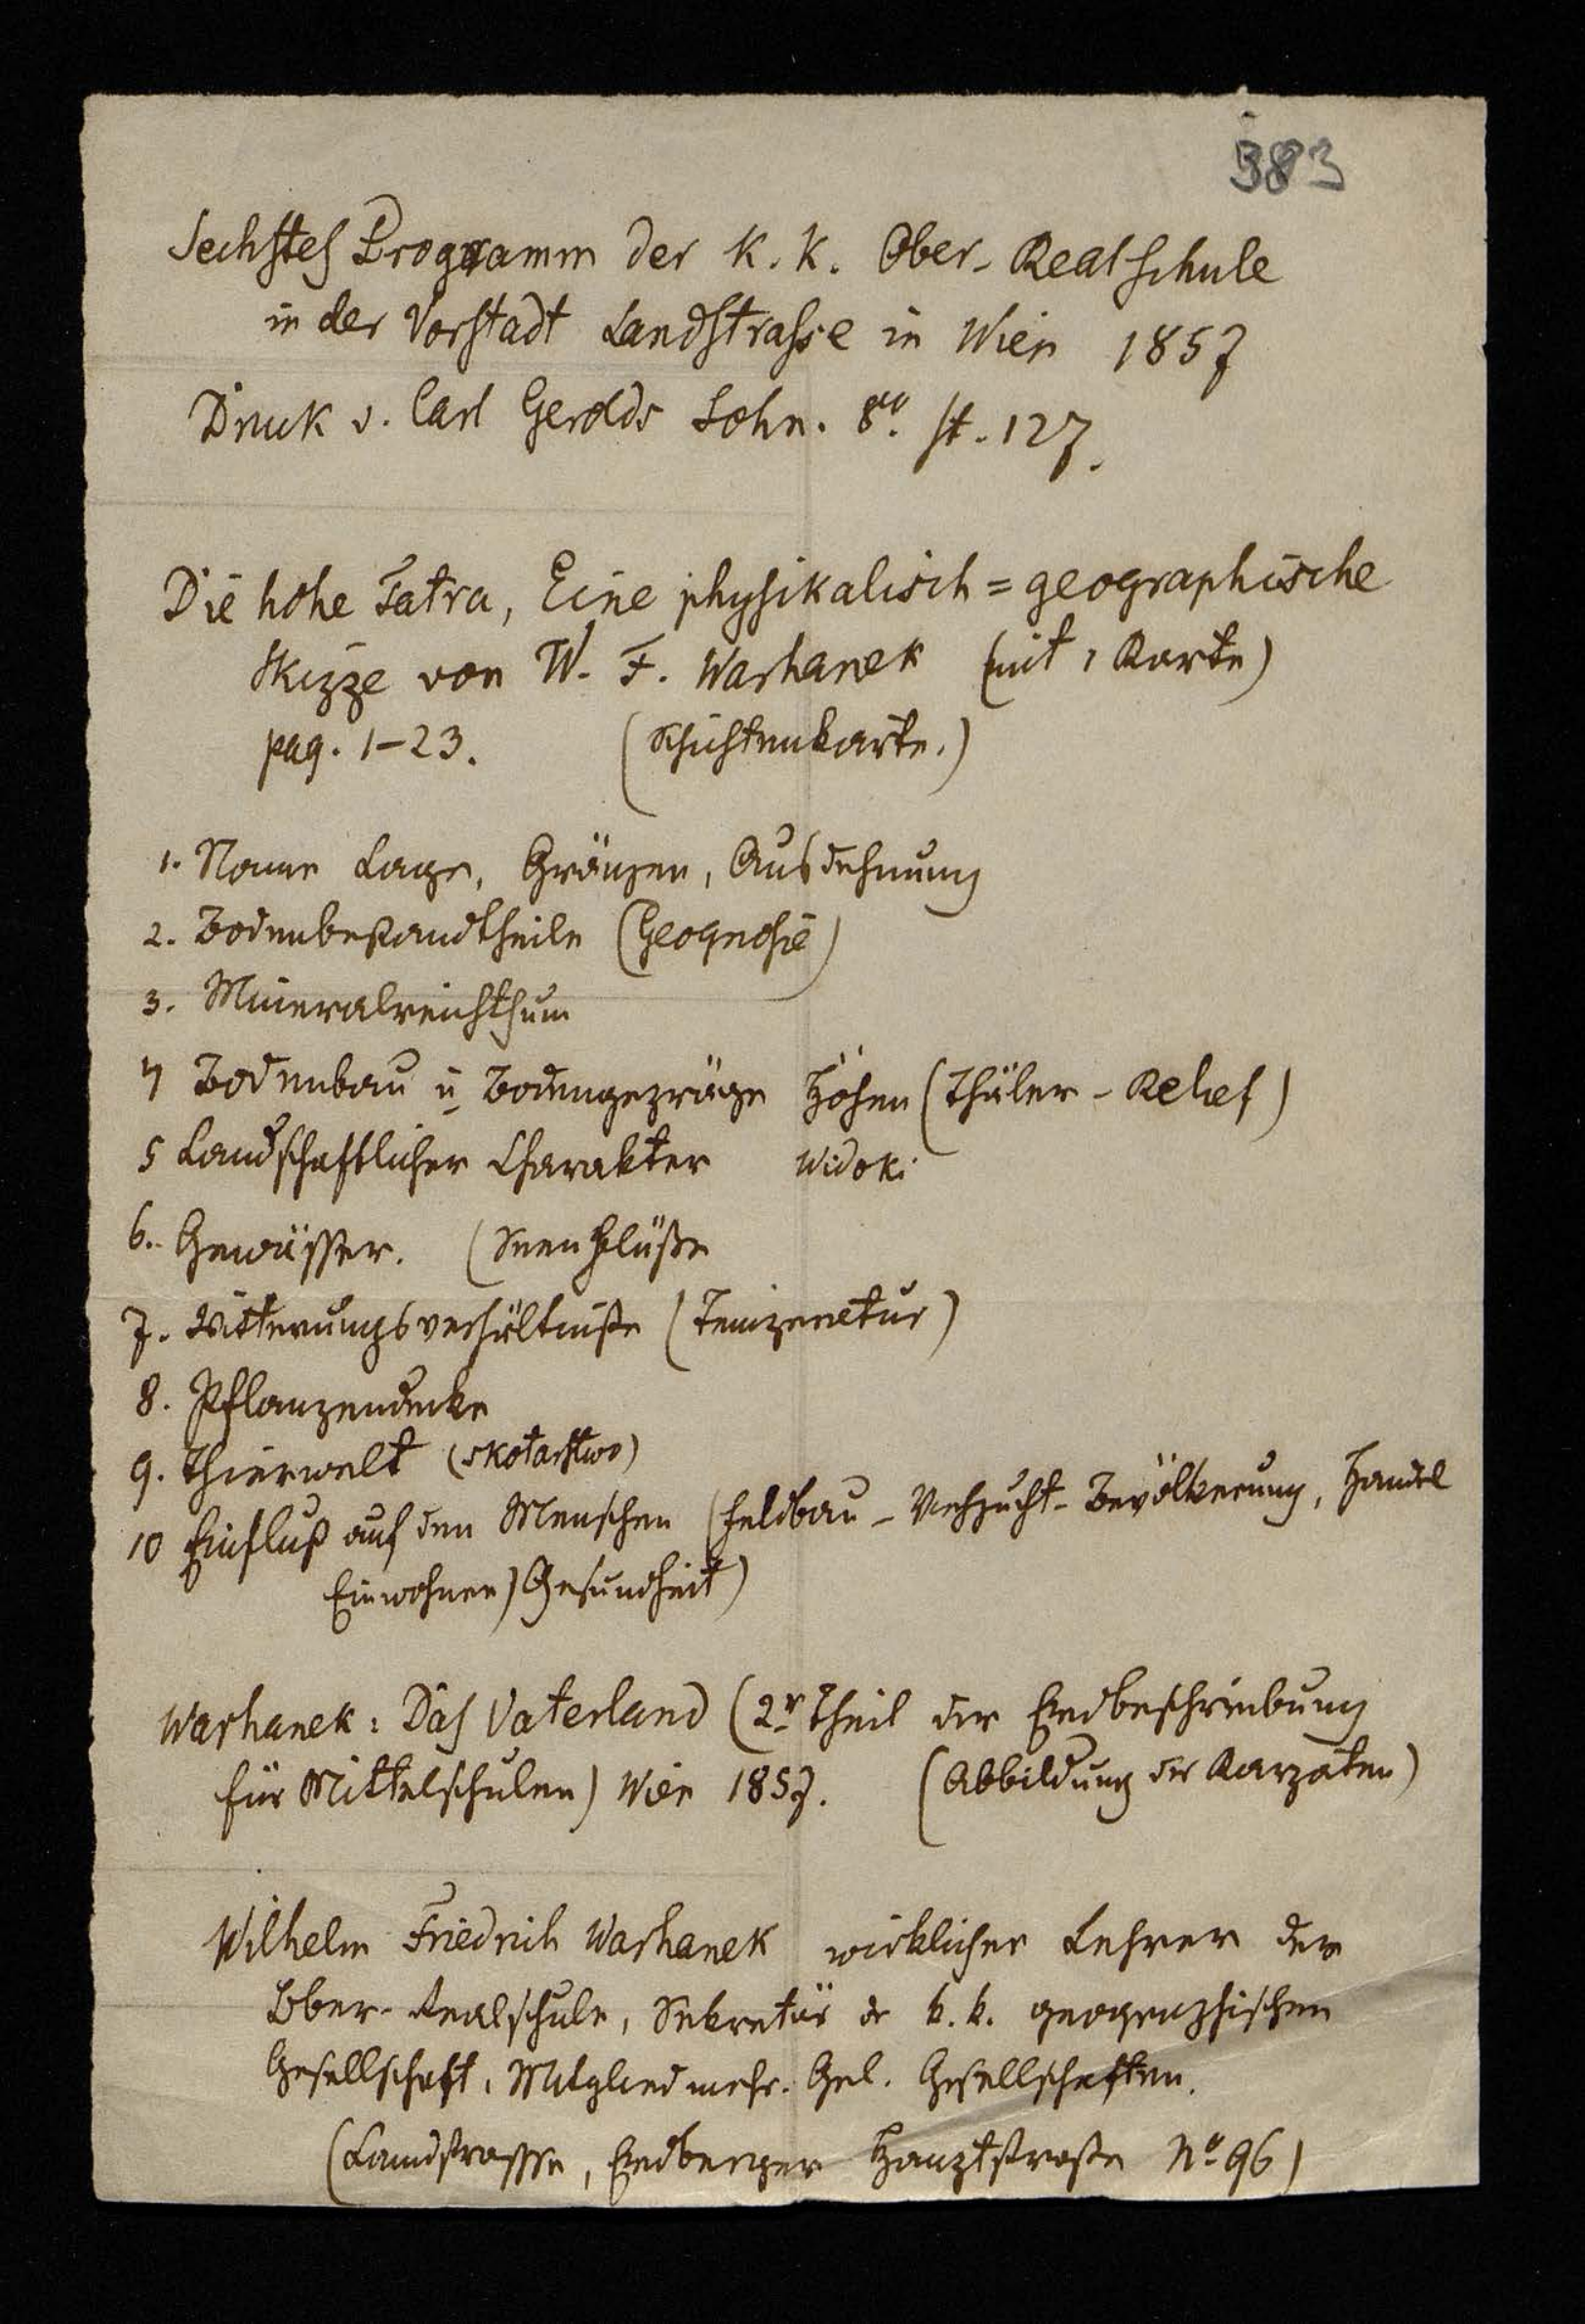 383
Sechstes Programm der K. K. Ober-Realschule
in der Vorstadt Landstrasse in Wien 1857
Druk v. Carl Gerolds Sohn. 8º. st. 127.
Die hohe Tatra, Eine physikalisch=geographische
Skizze von W. F. Warhanek (mit 1 Karte)
pag. 1-23. (Schichtenkarte.)
1. Name Lage, Gränzen, Ausdehnung
2. Bodenbestandtheile (Geognosie)
3. Mineralreichthum
4 Bodenbau u Bodengepräge Höhen (Thäler - Relief)
5 Landschaftlicher Charakter Widoki
6. Gewässer. (Seen Flüße
7. Witterungsverhältniße (Temperatur)
8. Pflanzendecke
9. Thierwelt (skotarstwo)
10 Einfluß auf den Menschen (Feldbau - Viehzucht - Bevölkerung, Handel
Einwohner) Gesundheit)
Warhanek: Das Vaterland (2r Theil der Erdbeschreibung
für Mittelschulen) Wien 1857. (Abbildung der Karpaten)
Wilhelm Friedrich Warhanek wirklicher Lehrer der
Ober-Realschule, Sekretär der k. k. geographischen
Gesellschaft, Mitglied mehr. Gel. Gesellschaften.
(Landstrasse, Erdberger Hauptstraße Nº 96)